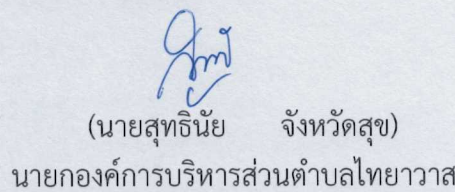 (นายสุทธินัย จังหวัดสุข)
นายกองค์การบริหารส่วนตำบลไทยาวาส